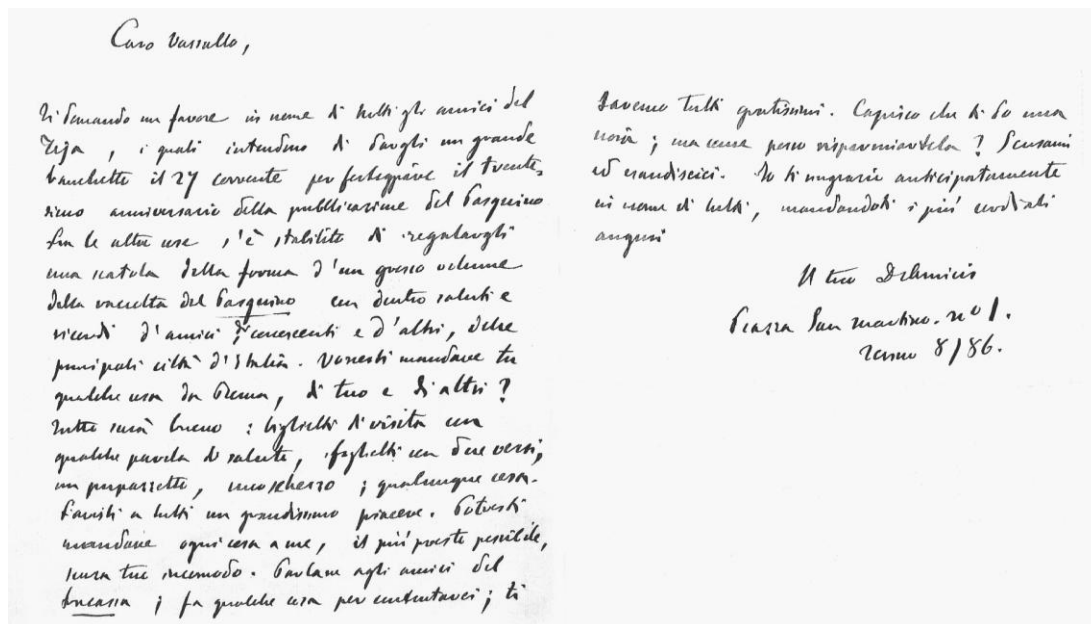 Caro Vassallo,
Ti domando un favore in nome di tutti gli amici del
Teja, i quali intendono di dargli un grande
banchetto il 27 corrente per festeggiare il trente,
simo anniversario della pubblicazione del Pasquino
fra le altre cose s'è stabilito di regalargli
una scatola della forma d'un grosso volume
della raccolta del Pasquino con dentro saluti e
ricordi d'amici, conoscenti e d'altri, delle
principali città d'Italia. Vorresti mandare tu
qualche cosa da Roma, di tuo e di altri?
Tutto sarà buono: biglietti di visita con
qualche parola di saluto, foglietti con due versi,
un pupazzetto, uno scherzo; qualunque cosa.
Faresti a tutti un grandissimo piacere. Potresti
mandare ogni cosa a me, il più presto possibile,
senza tuo incomodo. Parlane agli amici del
Fracassa; fa qualche cosa per contentarci; ti
saremo tutti gratissimi. Capisco che ti do una
noia; ma come posso risparmiartela? Scusami
ed esaudiscici. Io ti ringrazio anticipatamente
in nome di tutti, mandandoti i più cordiali
auguri
Il tuo DeAmicis
Piazza San Martino. nº 1.
8/86.